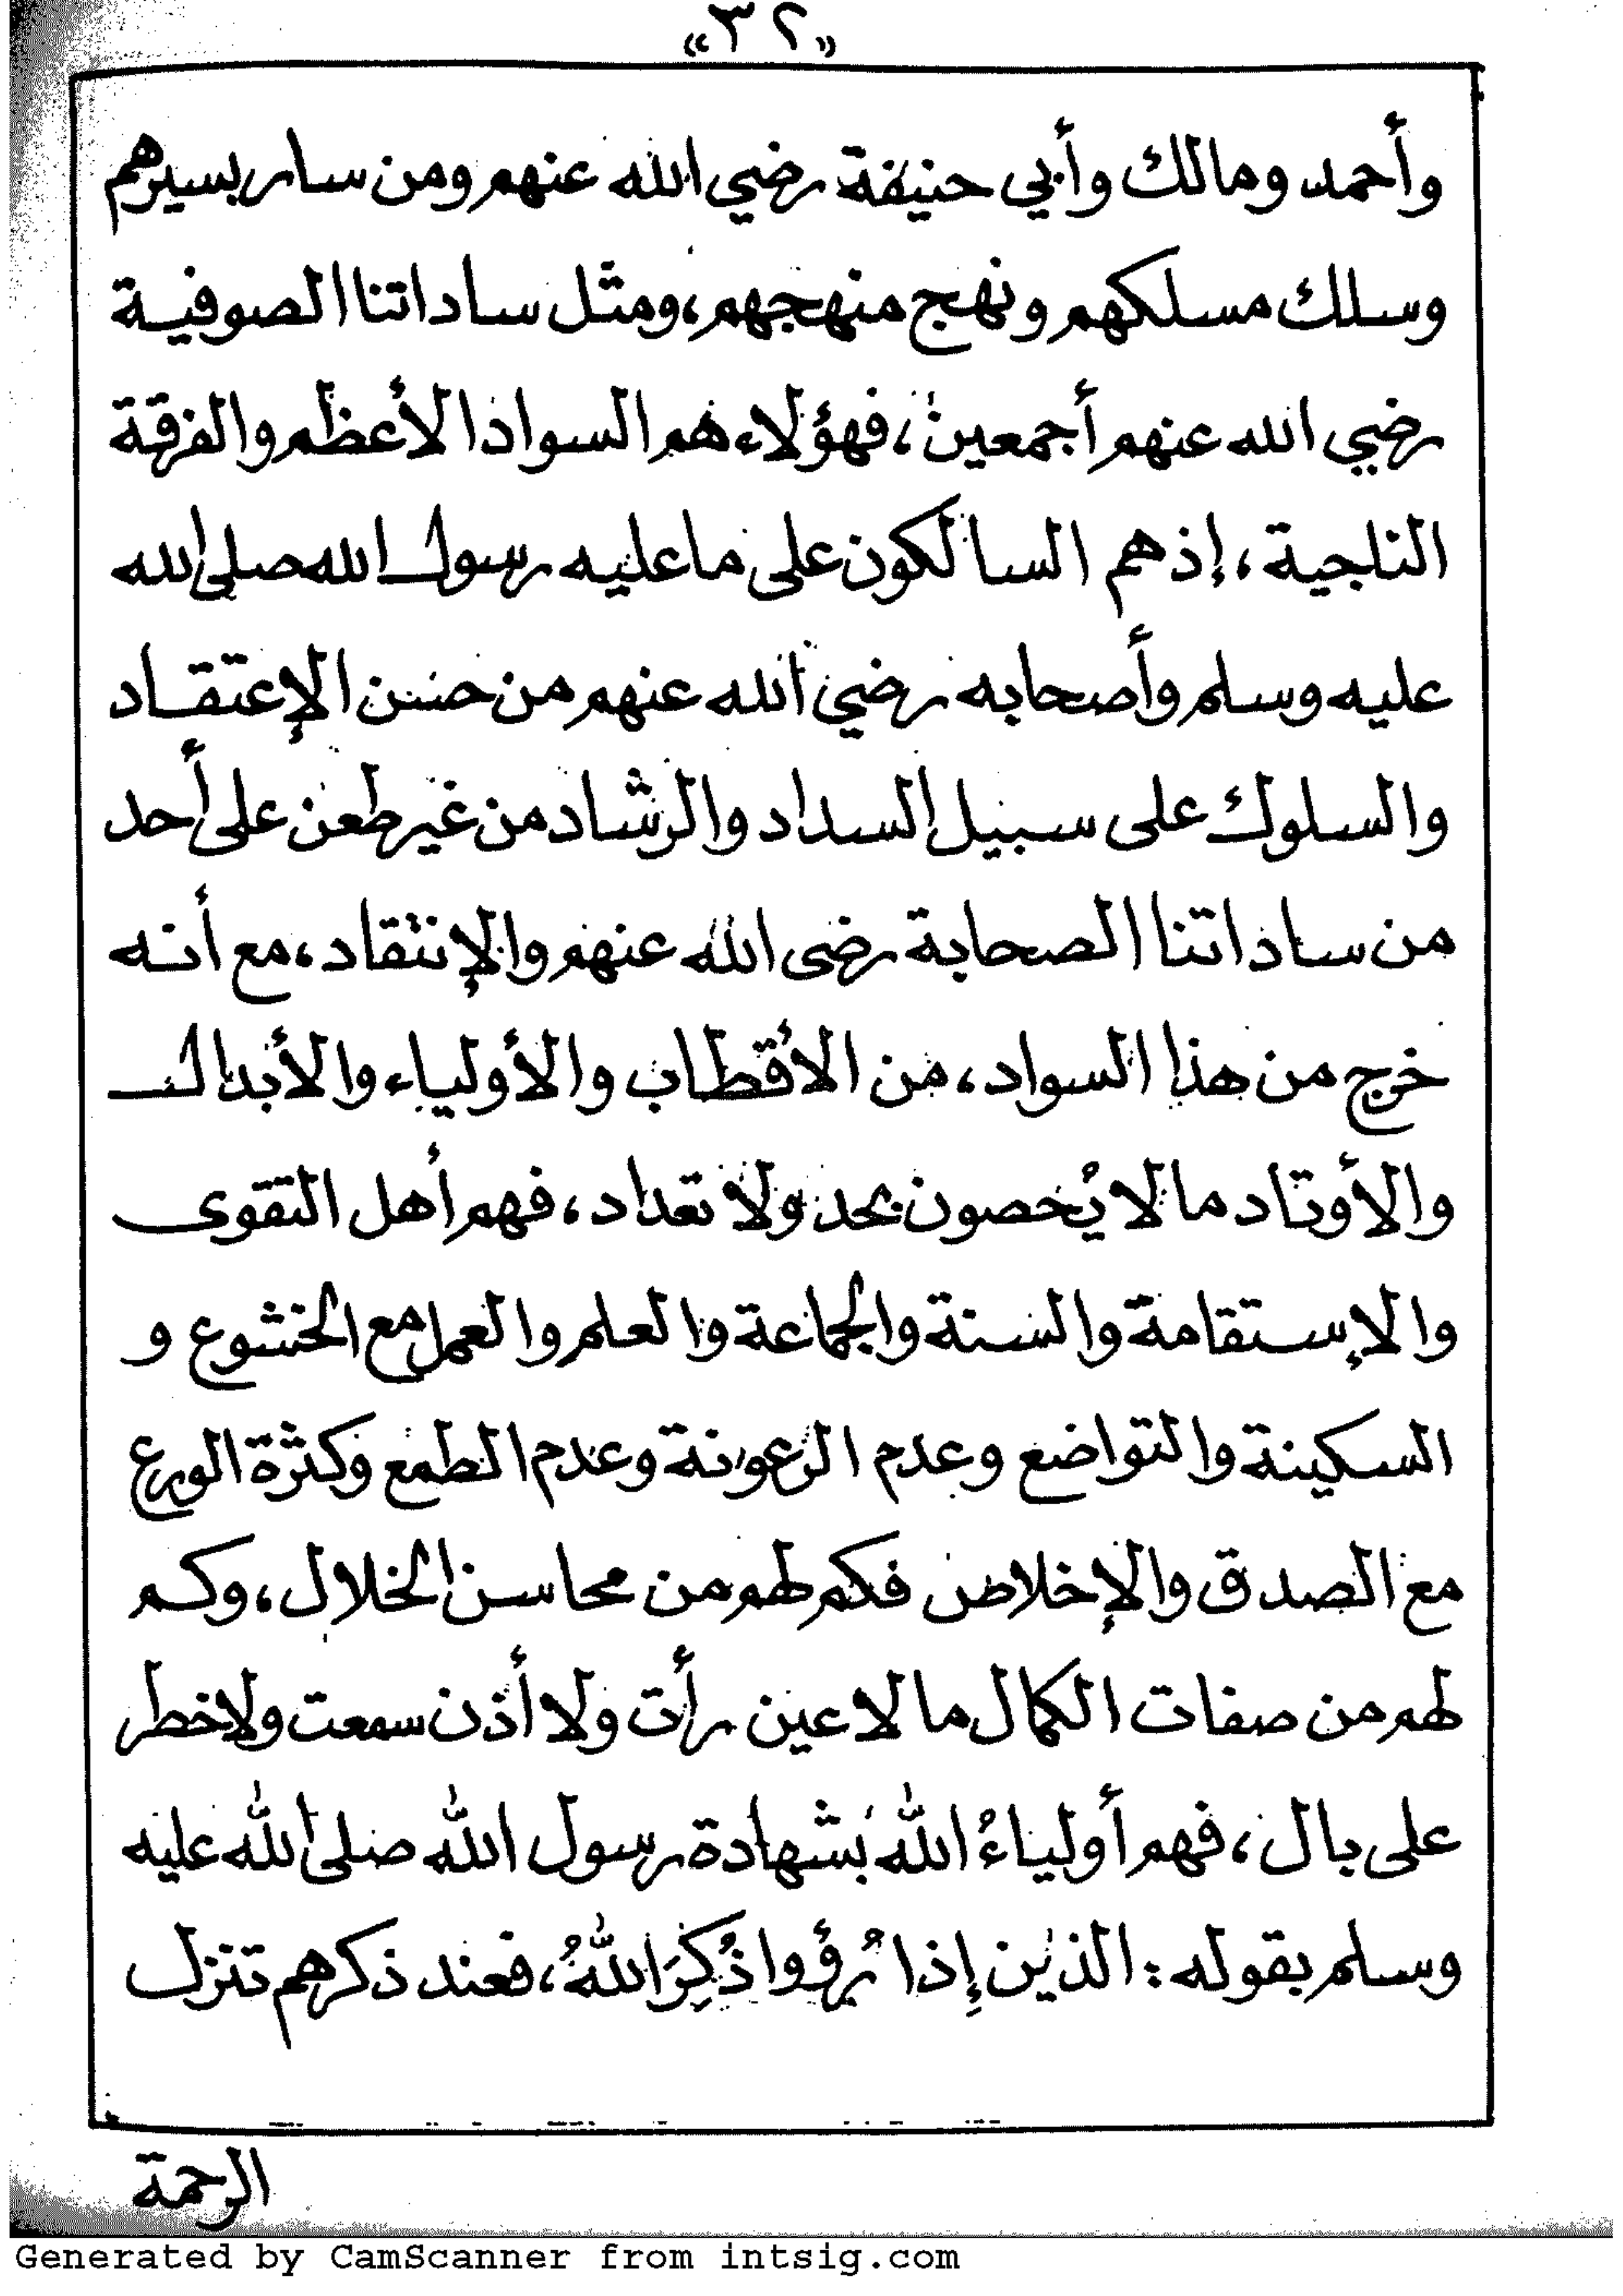 «٣٢»
وأحمد ومالك وأبي حنيفة رضي الله عنهم ومن سار بسيرهم
وسلك مسلكهم ونهج منهجهم، ومثل ساداتنا الصوفية
رضي الله عنهم أجمعين، فهؤلاء هم السواد الأعظم والفرقة
الناجية، إذ هم السالكون على ما عليه رسول الله صلى الله
عليه وسلم وأصحابه رضي الله عنهم من حسن الإعتقاد
والسلوك على سبيل السداد والرشاد من غير طعن على أحد
من ساداتنا الصحابة رضى الله عنهم والإنتقاد، مع أنه
خرج من هذا السواد، من الأقطاب والأولياء والأبدال
والأوتاد ما لا يُحصون بحد ولا تعداد، فهم أهل التقوى
والإستقامة والسنة والجماعة والعلم والعمل مع الخشوع و
السكينة والتواضع وعدم الرعونة وعدم الطمع وكثرة الورع
مع الصدق والإخلاص فكم لهم من محاسن الخلال، وكم
لهم من صفات الكمال ما لا عين رأت ولا أذن سمعت ولا خطر
على بال، فهم أولياءُ الله بشهادة رسول الله صلى الله عليه
وسلم بقوله: الذين إِذا رُؤوا ذُكِرَ اللهُ، فعند ذكرهم تتنزل
الرحمة
Generated by CamScanner from intsig.com